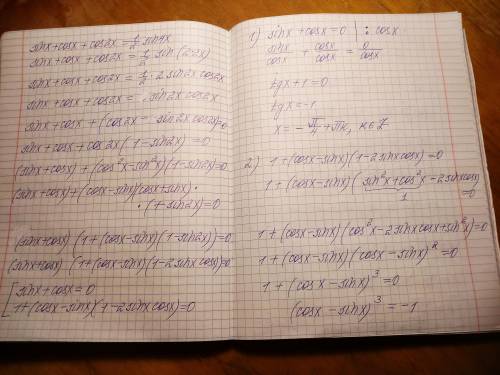 sinx + cosx + cos2x = 1/2 sin4x
sinx + cosx + cos2x = 1/2 sin(2·2x)
sinx + cosx + cos2x = 1/2 · 2sin2x cos2x
sinx + cosx + cos2x = sin2x cos2x
sinx + cosx + (cos2x - sin2x cos2x) = 0
sinx + cosx + cos2x(1 - sin2x) = 0
(sinx + cosx) + (cos²x - sin²x)(1 - sin2x) = 0
(sinx + cosx) + (cosx - sinx)(cosx + sinx) ·
· (1 - sin2x) = 0
(sinx + cosx) (1 + (cosx - sinx)(1 - sin2x)) = 0
(sinx + cosx) (1 + (cosx - sinx)(1 - 2sinx cosx)) = 0
[ sinx + cosx = 0
1 + (cosx - sinx)(1 - 2sinx cosx) = 0
1) sinx + cosx = 0 | : cosx
sinx/cosx + cosx/cosx = 0/cosx
tgx + 1 = 0
tgx = -1
x = - π/4 + πk, k ∈ Z
2) 1 + (cosx - sinx)(1 - 2sinx cosx) = 0
1 + (cosx - sinx)(sin²x + cos²x - 2sinx cosx) = 0
1
1 + (cosx - sinx)(cos²x - 2sinx cosx + sin²x) = 0
1 + (cosx - sinx)(cosx - sinx)² = 0
1 + (cosx - sinx)³ = 0
(cosx - sinx)³ = -1